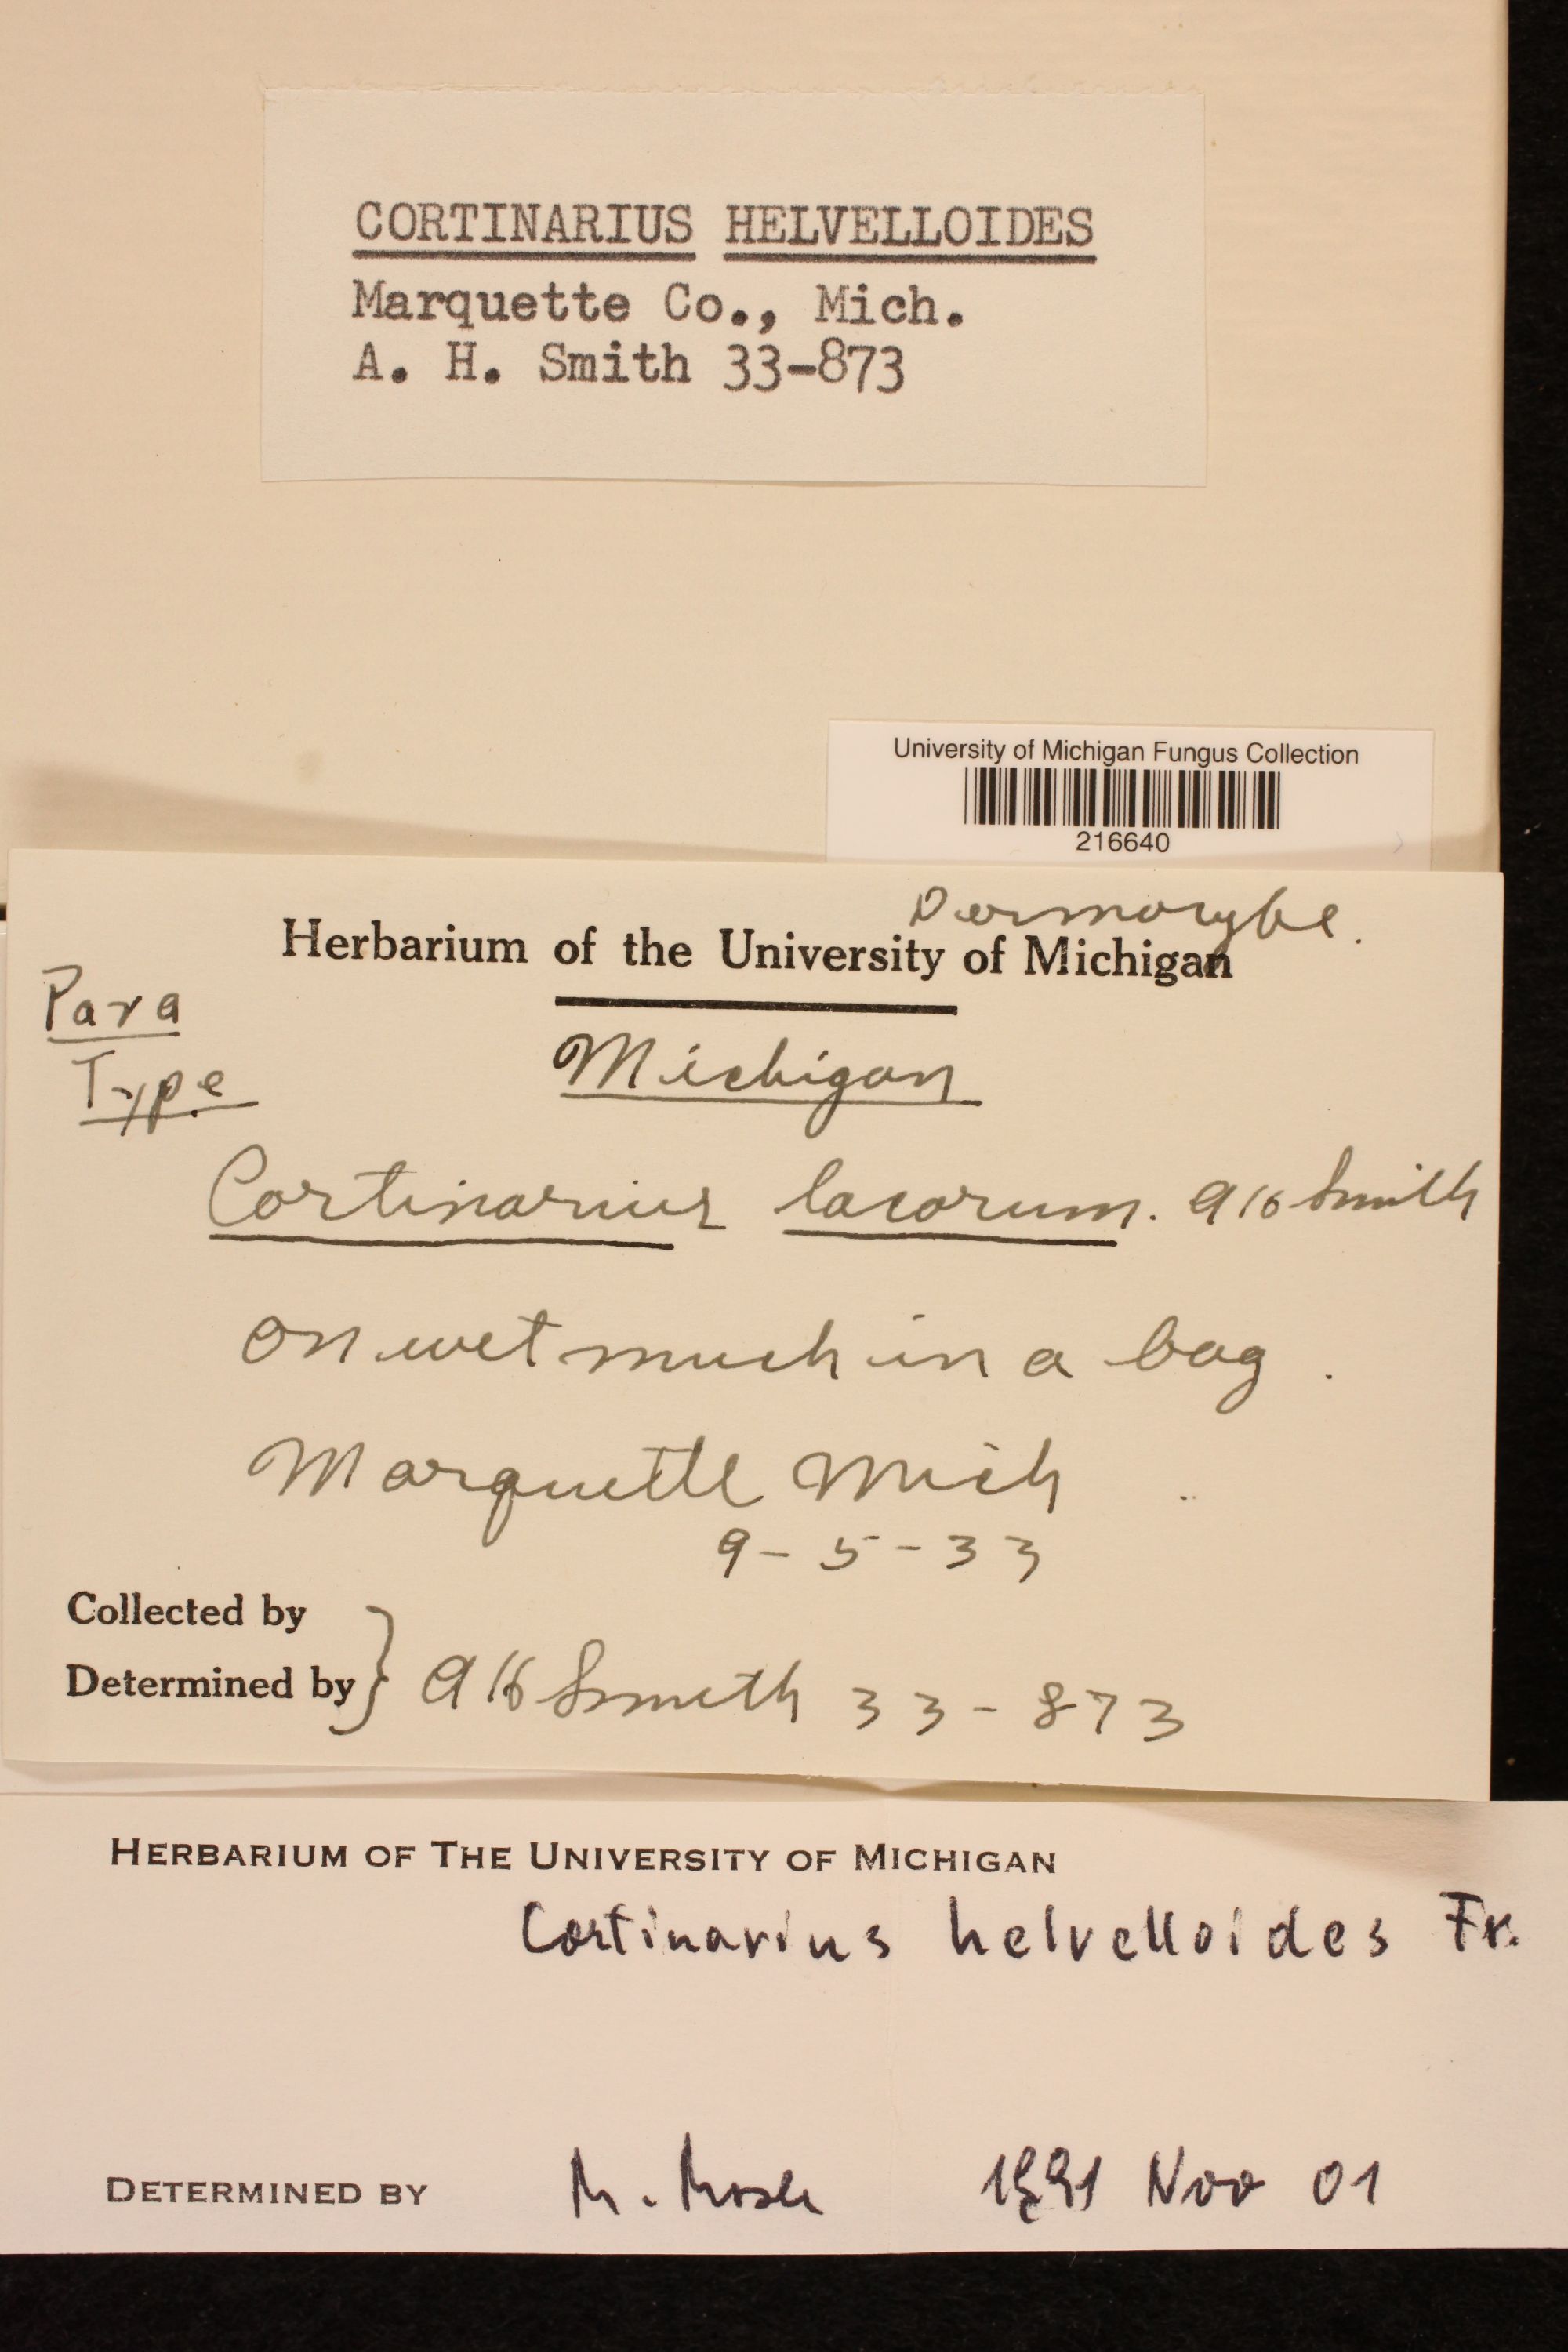 CORTINARIUS HELVELLOIDES
Marquette Co., Mich.
A. H. Smith 33-873
University of Michigan Fungus Collection
216640
Dermocybe.
Herbarium of the University of Michigan
Para
Type
Michigan
Cortinarius lacorum. A H Smith
on wet muck in a bog.
Marquette Mich
9-5-33
Collected by
Determined by } A H Smith 33-873
HERBARIUM OF THE UNIVERSITY OF MICHIGAN
Cortinarius helvelloides Fr.
DETERMINED BY M. Moser 1991 Nov 01